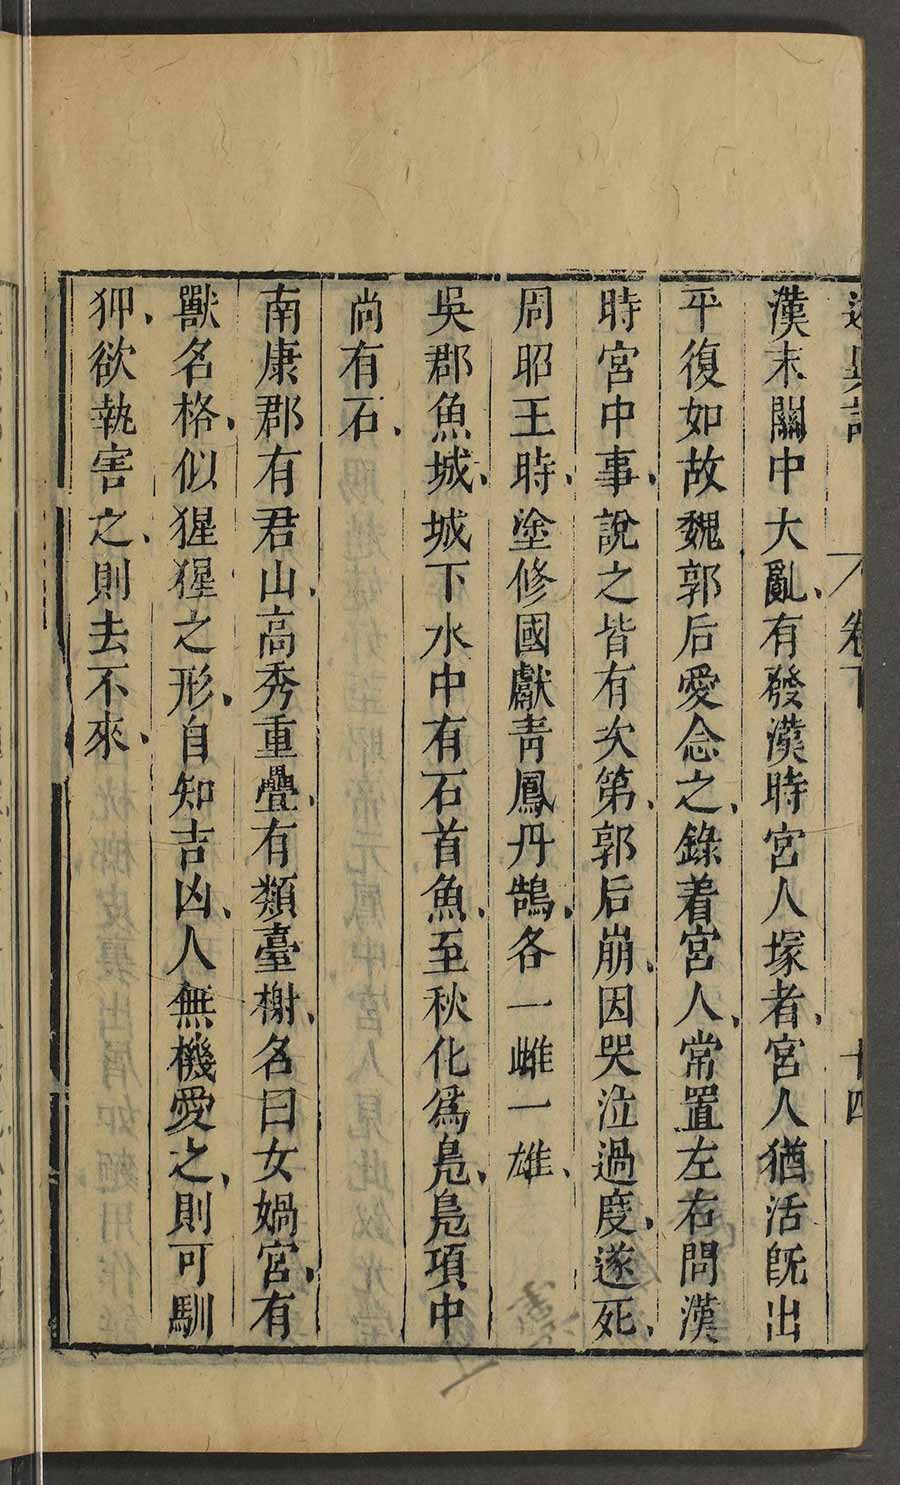 述異記 卷下 十四
漢末關中大亂、有發漢時宮人塚者、宮人猶活既出
平復如故魏郭后愛念之、錄着宮人、常置左右問漢
時宮中事、說之皆有次第、郭后崩、因哭泣過度、遂死、
周昭王時、塗修國獻青鳳丹鵠、各一雌一雄、
吳郡魚城、城下水中有石首魚、至秋化爲鳧、鳧項中
尚有石、
南康郡有君山、高秀重疊、有類臺榭、名曰女媧宮、有
獸名格、似猩猩之形、自知吉凶、人無機愛之、則可馴
狎、欲執害之、則去不來、